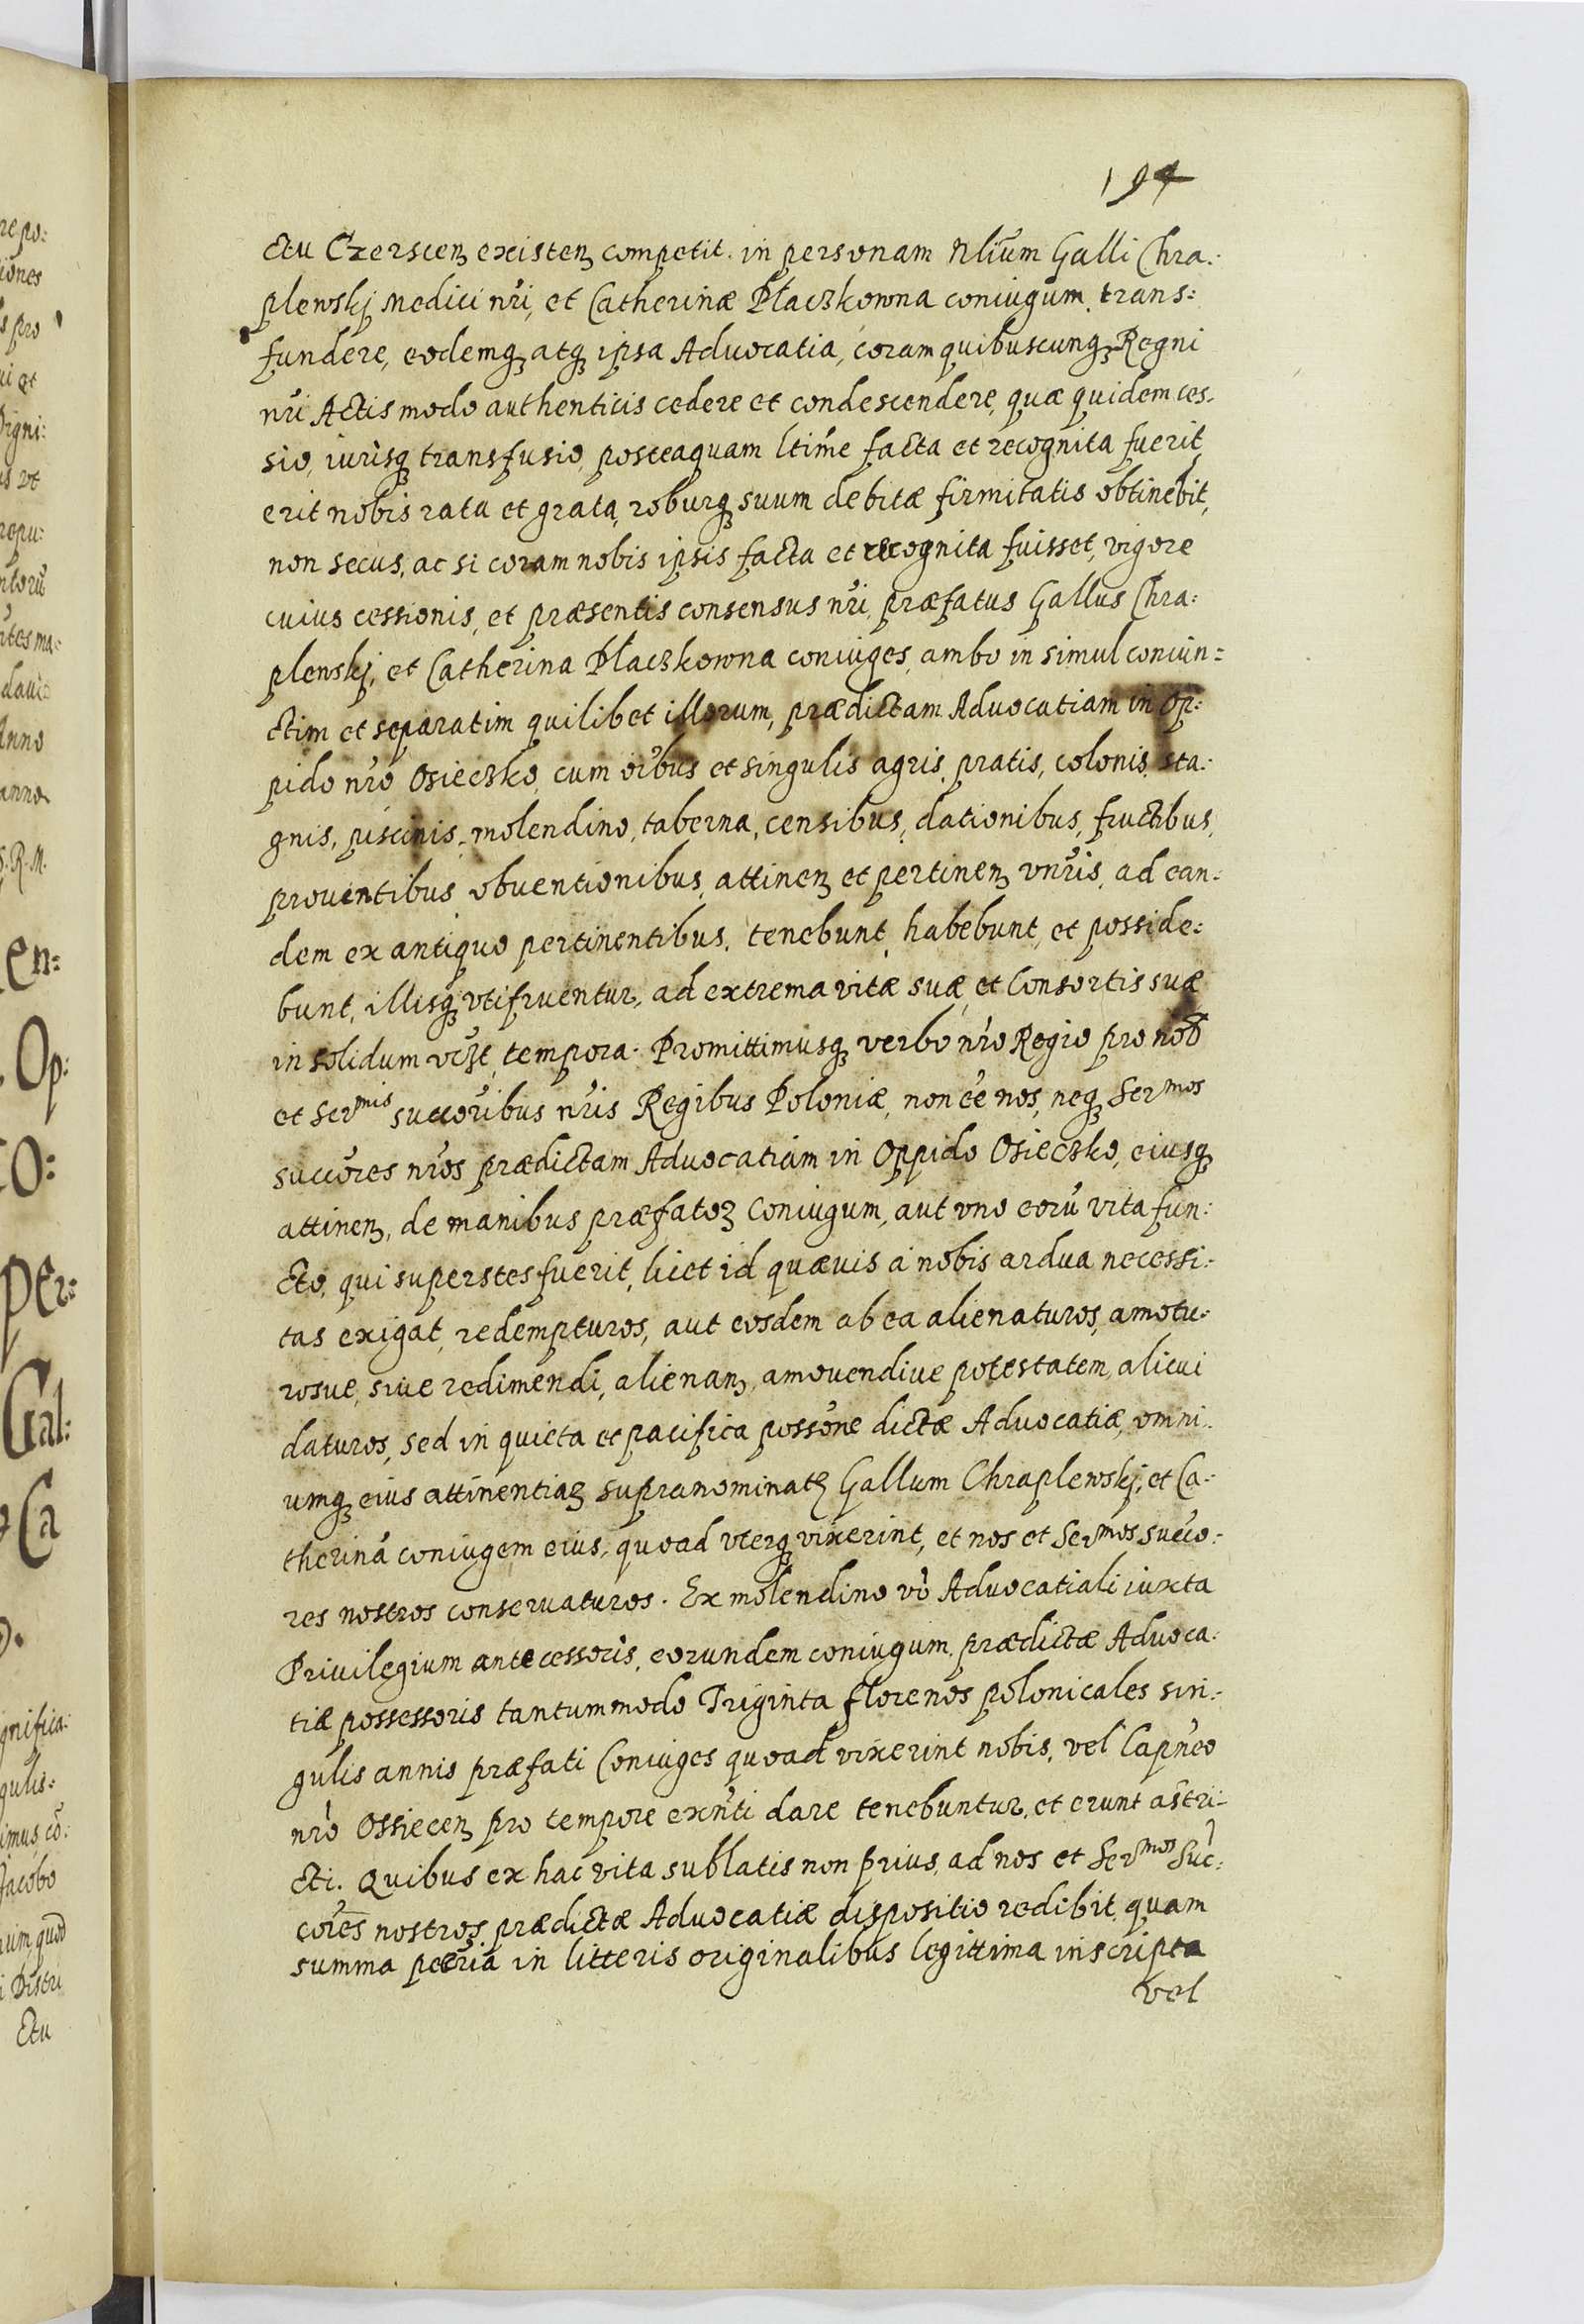 194
ctu Czerscen̄ existen̄ competit. in personam Nlium Galli Chra:
plewskj Medici nri, et Catherinæ Płaczkowna coniugum. trans:
fundere, eodemq atq ipsa Aduocatia, coram quibuscunq Regni
nri Actis modo authenticis cedere et condescendere, quæ quidem ces-
sio, iurisq transfusio, posteaquam ltime facta et recognita fuerit,
erit nobis rata et grata, roburq suum debitæ firmitatis obtinebit,
non secus, ac si coram nobis ipsis facta et recognita fuisset, vigore
cuius cessionis, et præsentis consensus nri, præfatus Gallus Chra:
plewskj, et Catherina Płaczkowna coniuges, ambo in simul coniun:
ctim et separatim quilibet illorum, prædictam Aduocatiam in Op:
pido nro Osieczko, cum oibus et singulis agris, pratis, colonis, sta:
gnis, piscinis, molendino, taberna, censibus, dationibus, fructibus,
prouentibus, obuentionibus, attinen̄ et pertinen̄ vnris, ad ean:
dem ex antiquo pertinentibus, tenebunt, habebunt, et posside:
bunt, illisq vtifruentur, ad extrema vitæ suæ, et Consortis suæ
in solidum vtzt, tempora. Promittimusq verbo nro Regio pro nob
et Sermis succoribus nris Regibus Poloniæ, non ee nos, neq Sermos
succores nros prædictam Aduocatiam in Oppido Osieczko, eiusq
attinen̄, de manibus præfatoʒ Coniugum, aut vno eorū vita fun:
cto, qui superstes fuerit, licet id quæuis à nobis ardua necessi:
tas exigat, redempturos, aut eosdem ab ea alienaturos, amotu:
rosue, siue redimendi, alienan̄, amouendiue potestatem, alicui
daturos, sed in quieta et pacifica possone dictæ Aduocatiæ, omni:
umq eius attinentiaʒ supranominatʒ Gallum Chraplewskj, et Ca:
therinā coniugem eius, quoad vterq vixerint, et nos et Sermos succo:
res nostros conseruaturos. Ex molendino vō Aduocatiali iuxta
Priuilegium antecessoris, eorundem coniugum, prædictæ Aduoca:
tiæ possessoris tantummodo Triginta florenos polonicales sin:
gulis annis præfati Coniuges quoad vixerint nobis, vel Capneo
nro Ossiecen̄ pro tempore exnti dare tenebuntur, et erunt astri:
cti. Quibus ex hac vita sublatis non prius, ad nos et Sermos Suc:
cores nostros, prædictæ Aduocatiæ dispositio redibit, quam
summa pecria in litteris originalibus legittima inscripta
vel